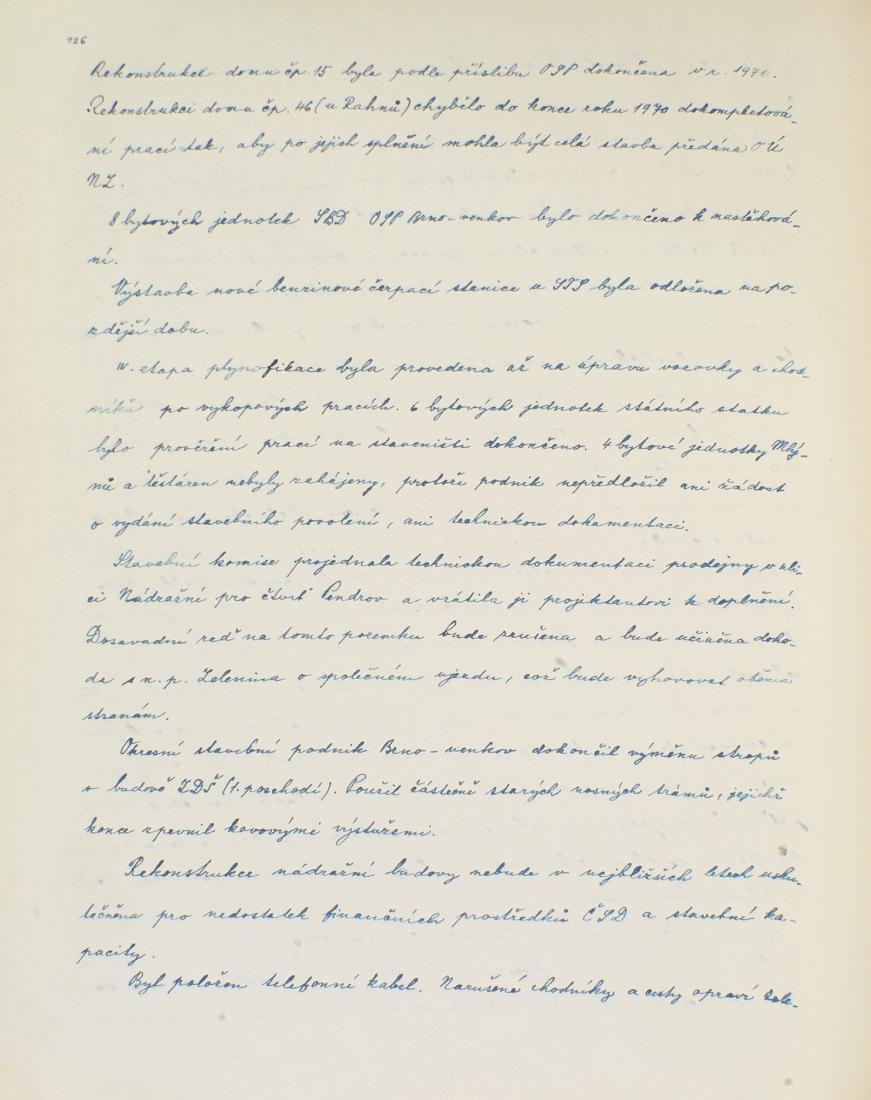 126
Rekonstrukce domu čp. 15 byla podle příslibu OSP dokončena v r. 1970.
Rekonstrukci domu čp. 46 (u Rahnů) chybělo do konce roku 1970 dokompletová-
ní prací tak, aby po jejich splnění mohla být celá stavba předána OÚ
NZ.
8 bytových jednotek SBD OSP Brno-venkov bylo dokončeno k nastěhová-
ní.
Výstavba nové benzinové čerpací stanice u STS byla odložena na po-
zdější dobu.
IV. etapa plynofikace byla provedena až na úpravu vozovky a chod-
níků po výkopových pracích. 6 bytových jednotek státního statku
bylo prověrění prací na staveništi dokončeno. 4 bytové jednotky Mlý-
nů a těstáren nebyly zahájeny, protože podnik nepředložil ani žádost
o vydání stavebního povolení, ani technickou dokumentaci.
Stavební komise projednala technickou dokumentaci prodejny v uli-
ci Nádražní pro čtvrť Pendrov a vrátila ji projektantovi k doplnění.
Dosavadní zeď na tomto pozemku bude zrušena a bude učiněna doho-
da s n. p. Zelenina o společném vjezdu, což bude vyhovovat oběma
stranám.
Okresní stavební podnik Brno-venkov dokončil výměnu stropů
v budově ZDŠ (1. poschodí). Použil částečně starých nosných trámů, jejichž
konce zpevnil kovovými výztužemi.
Rekonstrukce nádražní budovy nebude v nejbližších letech usku-
tečněna pro nedostatek finančních prostředků ČSD a stavební ka-
pacity.
Byl položen telefonní kabel. Narušené chodníky a cesty opraví tele-